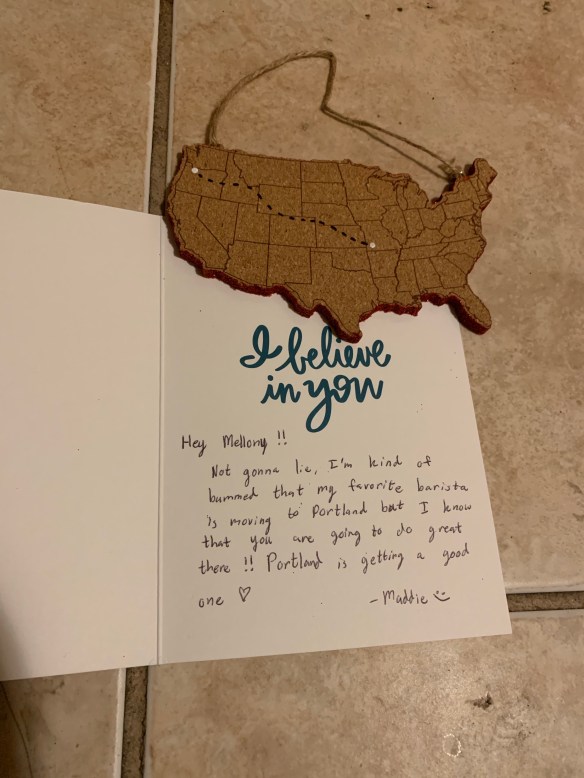 I believe
in you
Hey Mellony !!
Not gonna lie, I'm kind of
bummed that my favorite barista
is moving to Portland but I know
that you are going to do great
there !! Portland is getting a good
one ♡
- Maddie